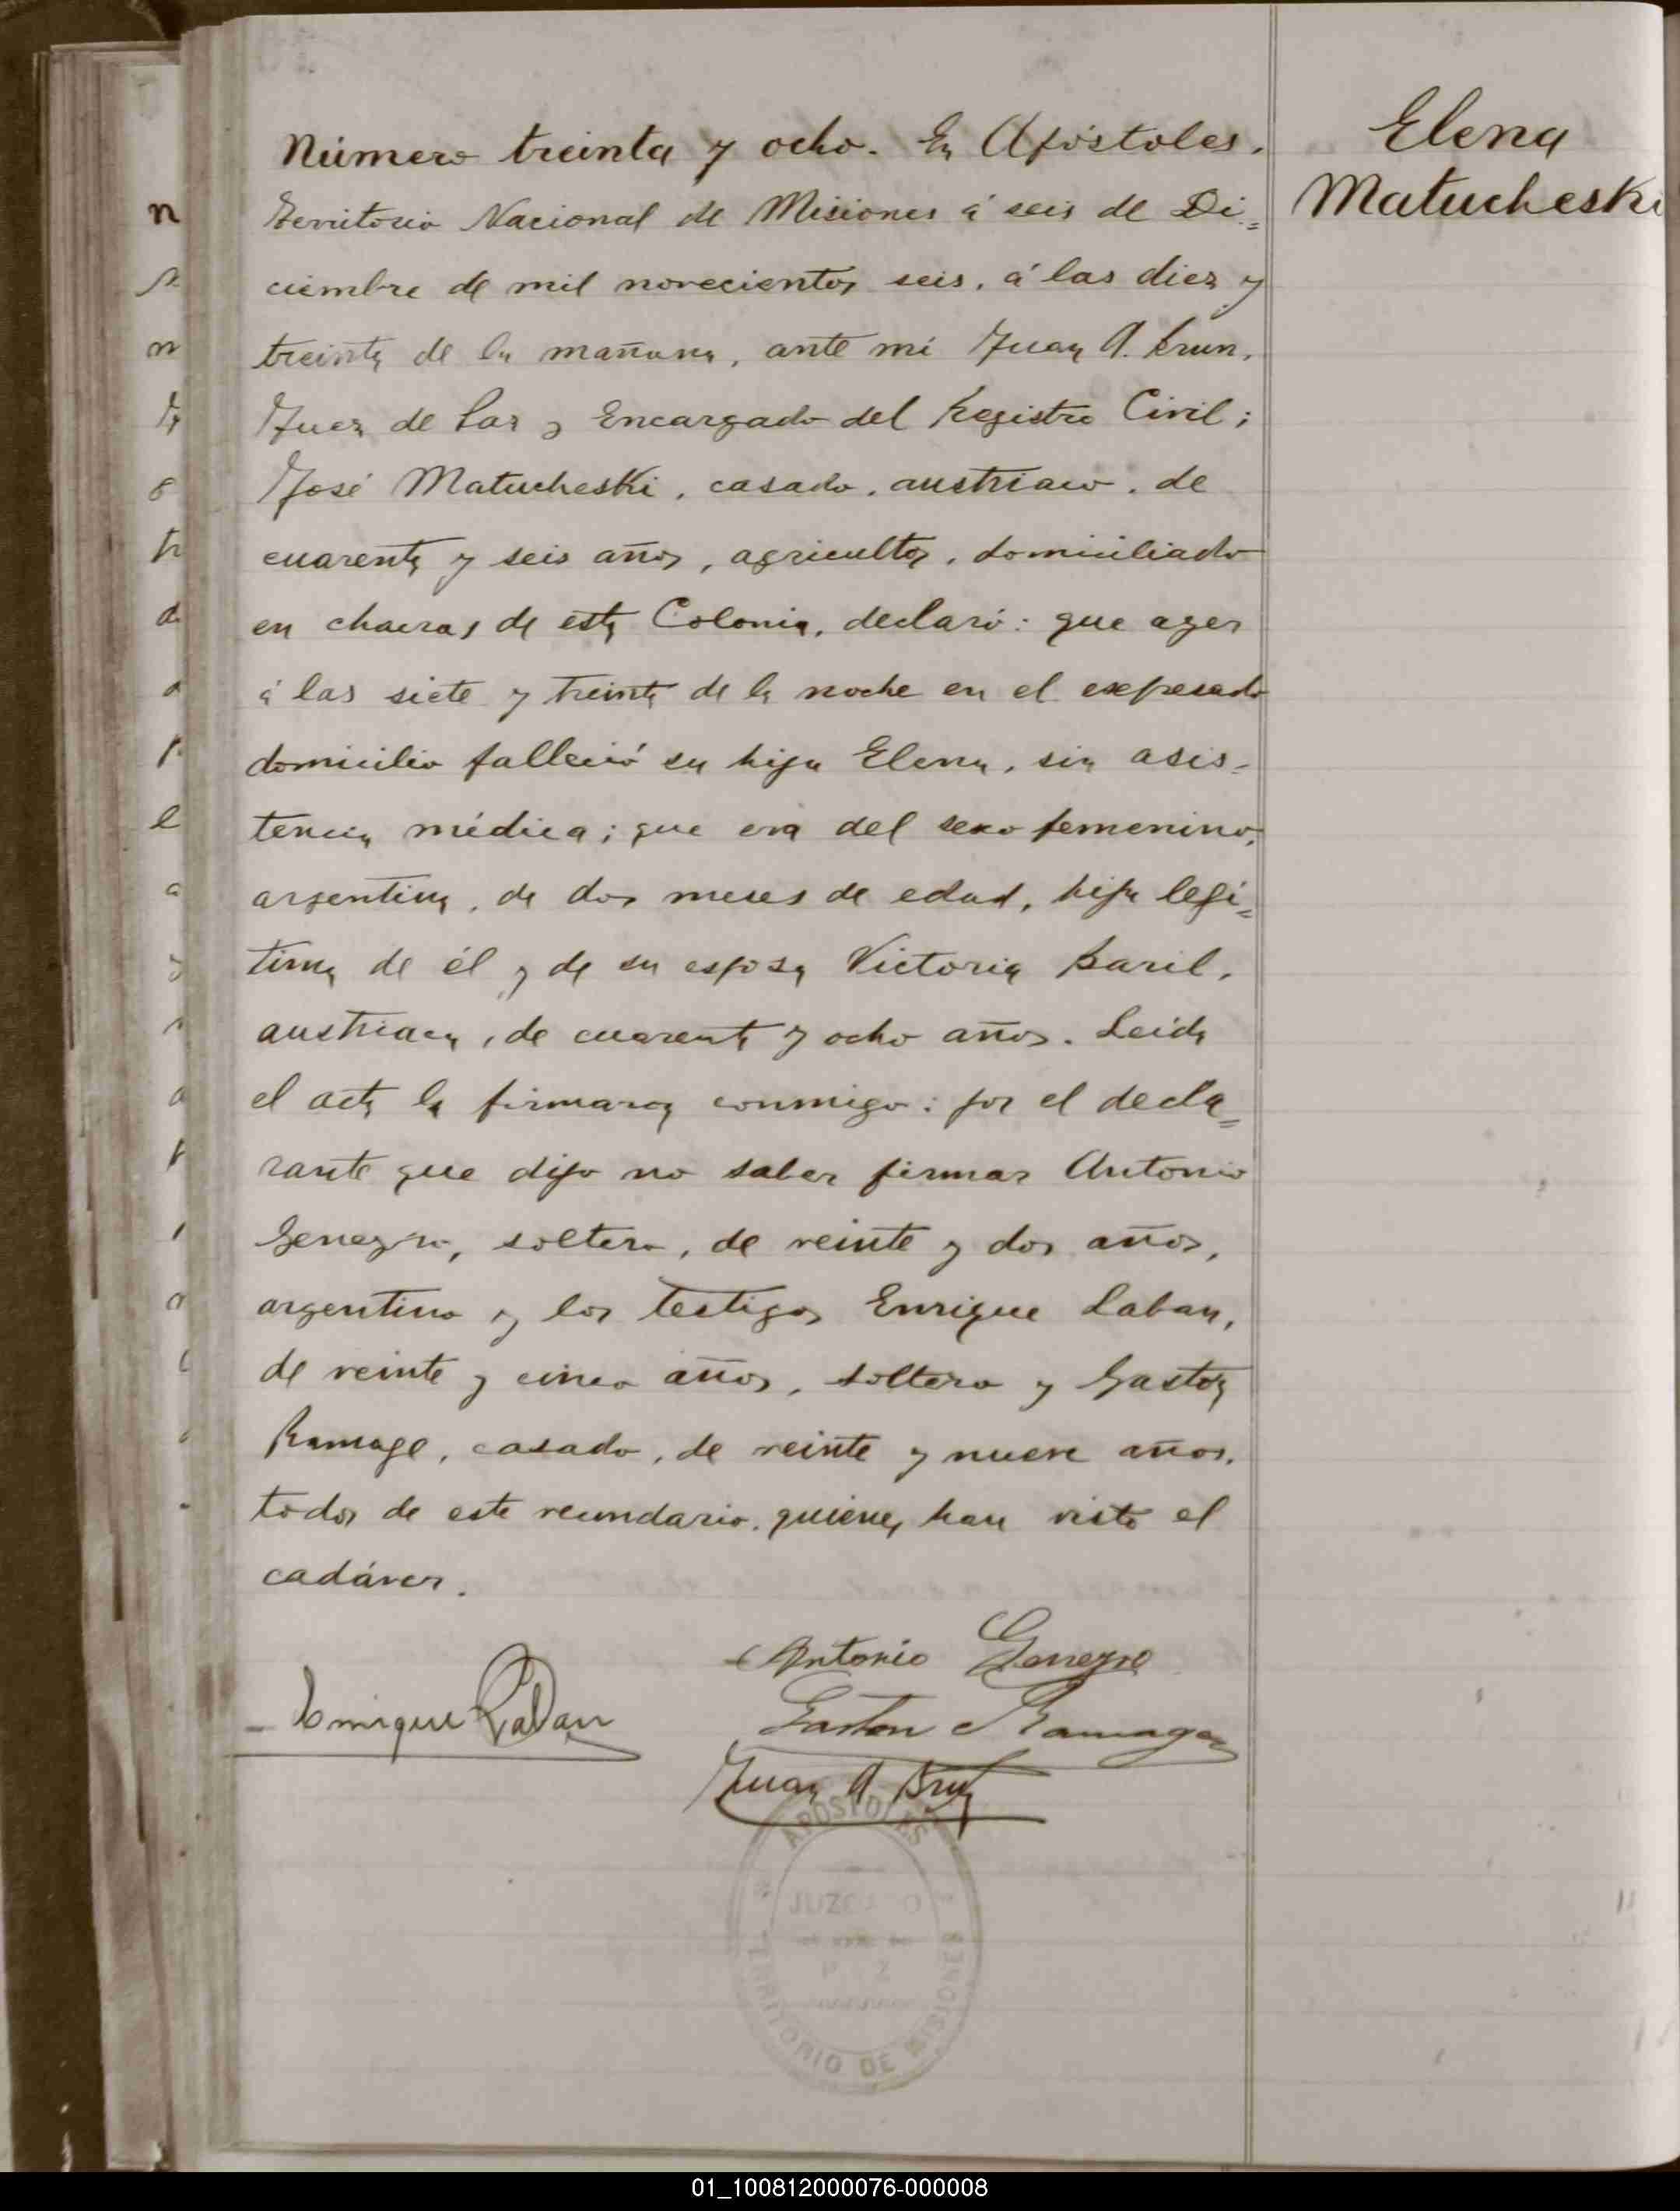 Elena
Matucheski
Número treinta y ocho. En Apóstoles,
Territorio Nacional de Misiones á seis de Di=
ciembre de mil novecientos seis, á las diez y
treinta de la mañana, ante mí Juan A. Brun,
Juez de Paz y Encargado del Registro Civil;
José Matucheski, casado, austriaco, de
cuarenta y seis años, agricultor, domiciliado
en chacras de esta Colonia, declaró: que ayer
á las siete y treinta de la noche en el expresado
domicilio falleció su hija Elena, sin asis-
tencia médica; que era del sexo femenino,
argentina, de dos meses de edad, hija legí=
tima de él y de su esposa Victoria Baril,
austriaca, de cuarenta y ocho años. Leida
el acta la firmaron conmigo: por el decla=
rante que dijo no saber firmar Antonio
Genegro, soltero, de veinte y dos años,
argentino y los testigos Enrique Laban,
de veinte y cinco años, soltero y Gaston
Ramage, casado, de veinte y nueve años,
todos de este vecindario, quienes han visto el
cadáver.
Antonio
Enrique Laban
Gaston Ramage
Juan A. Brun
APOSTOLES
JUZGADO
TERRITORIO DE MISIONES
01_100812000076-000008